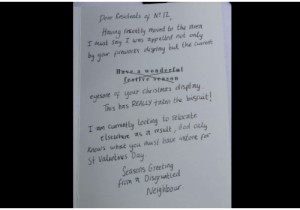 Dear Residents of No 12,
Having recently moved to the area
I must say I was appalled not only
by your fireworks display but the current
Have a wonderful
festive season
eyesore of your christmas display
This has REALLY taken the biscuit!
I am currently looking to relocate
elsewhere as a result, God only
knows what you must have instore for
St Valentines Day
Seasons Greeting
from a Disgruntled
Neighbour.